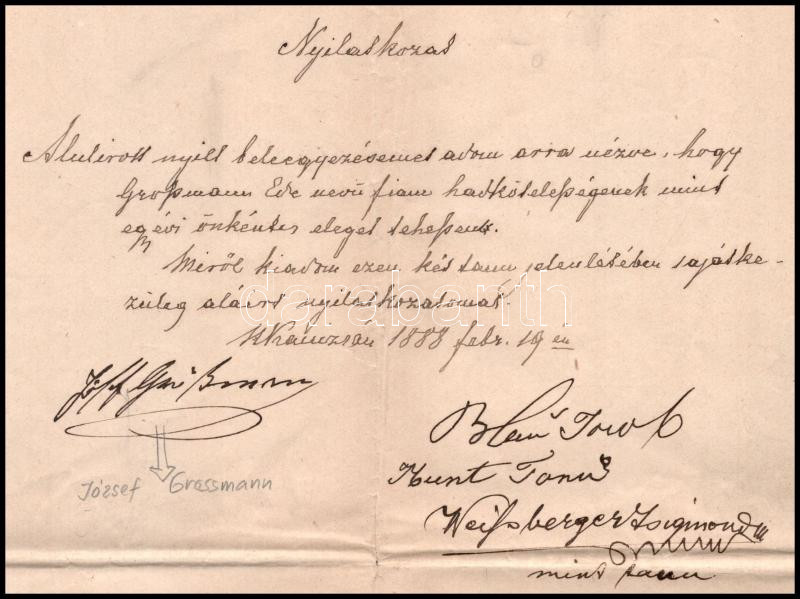 Nyilatkozat
Alulirott nyilt beleegyezésemet adom arra nézve, hogy
Großmann Ede nevű fiam hadköteleßégenek mint
egyévi önkéntes eleget teheßen.
Miröl kiadom ezen két tanu jelenlétében sajátke-
zuleg aláirt nyilatkozatomat.
NKanizsán 1888 febr. 19 én
darabanth
József Grossmann
Blau
mint Tanu
Weißberger Zsigmond
mint tanu